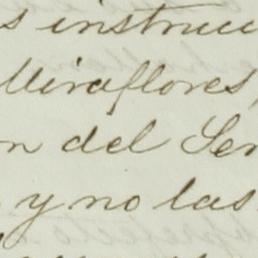 s instruc
Miraflores,
n del Ser
y no las